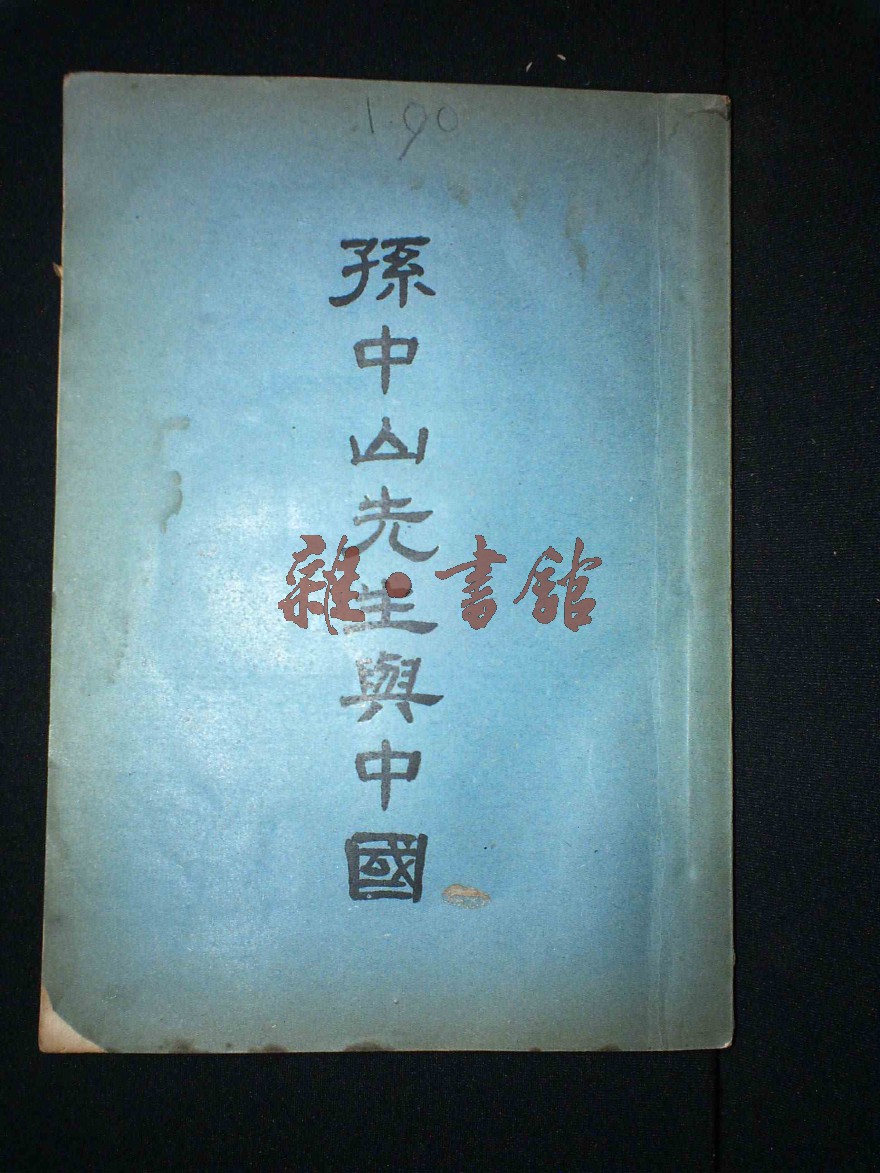 1.90
孫中山先生與中國
雜·書館